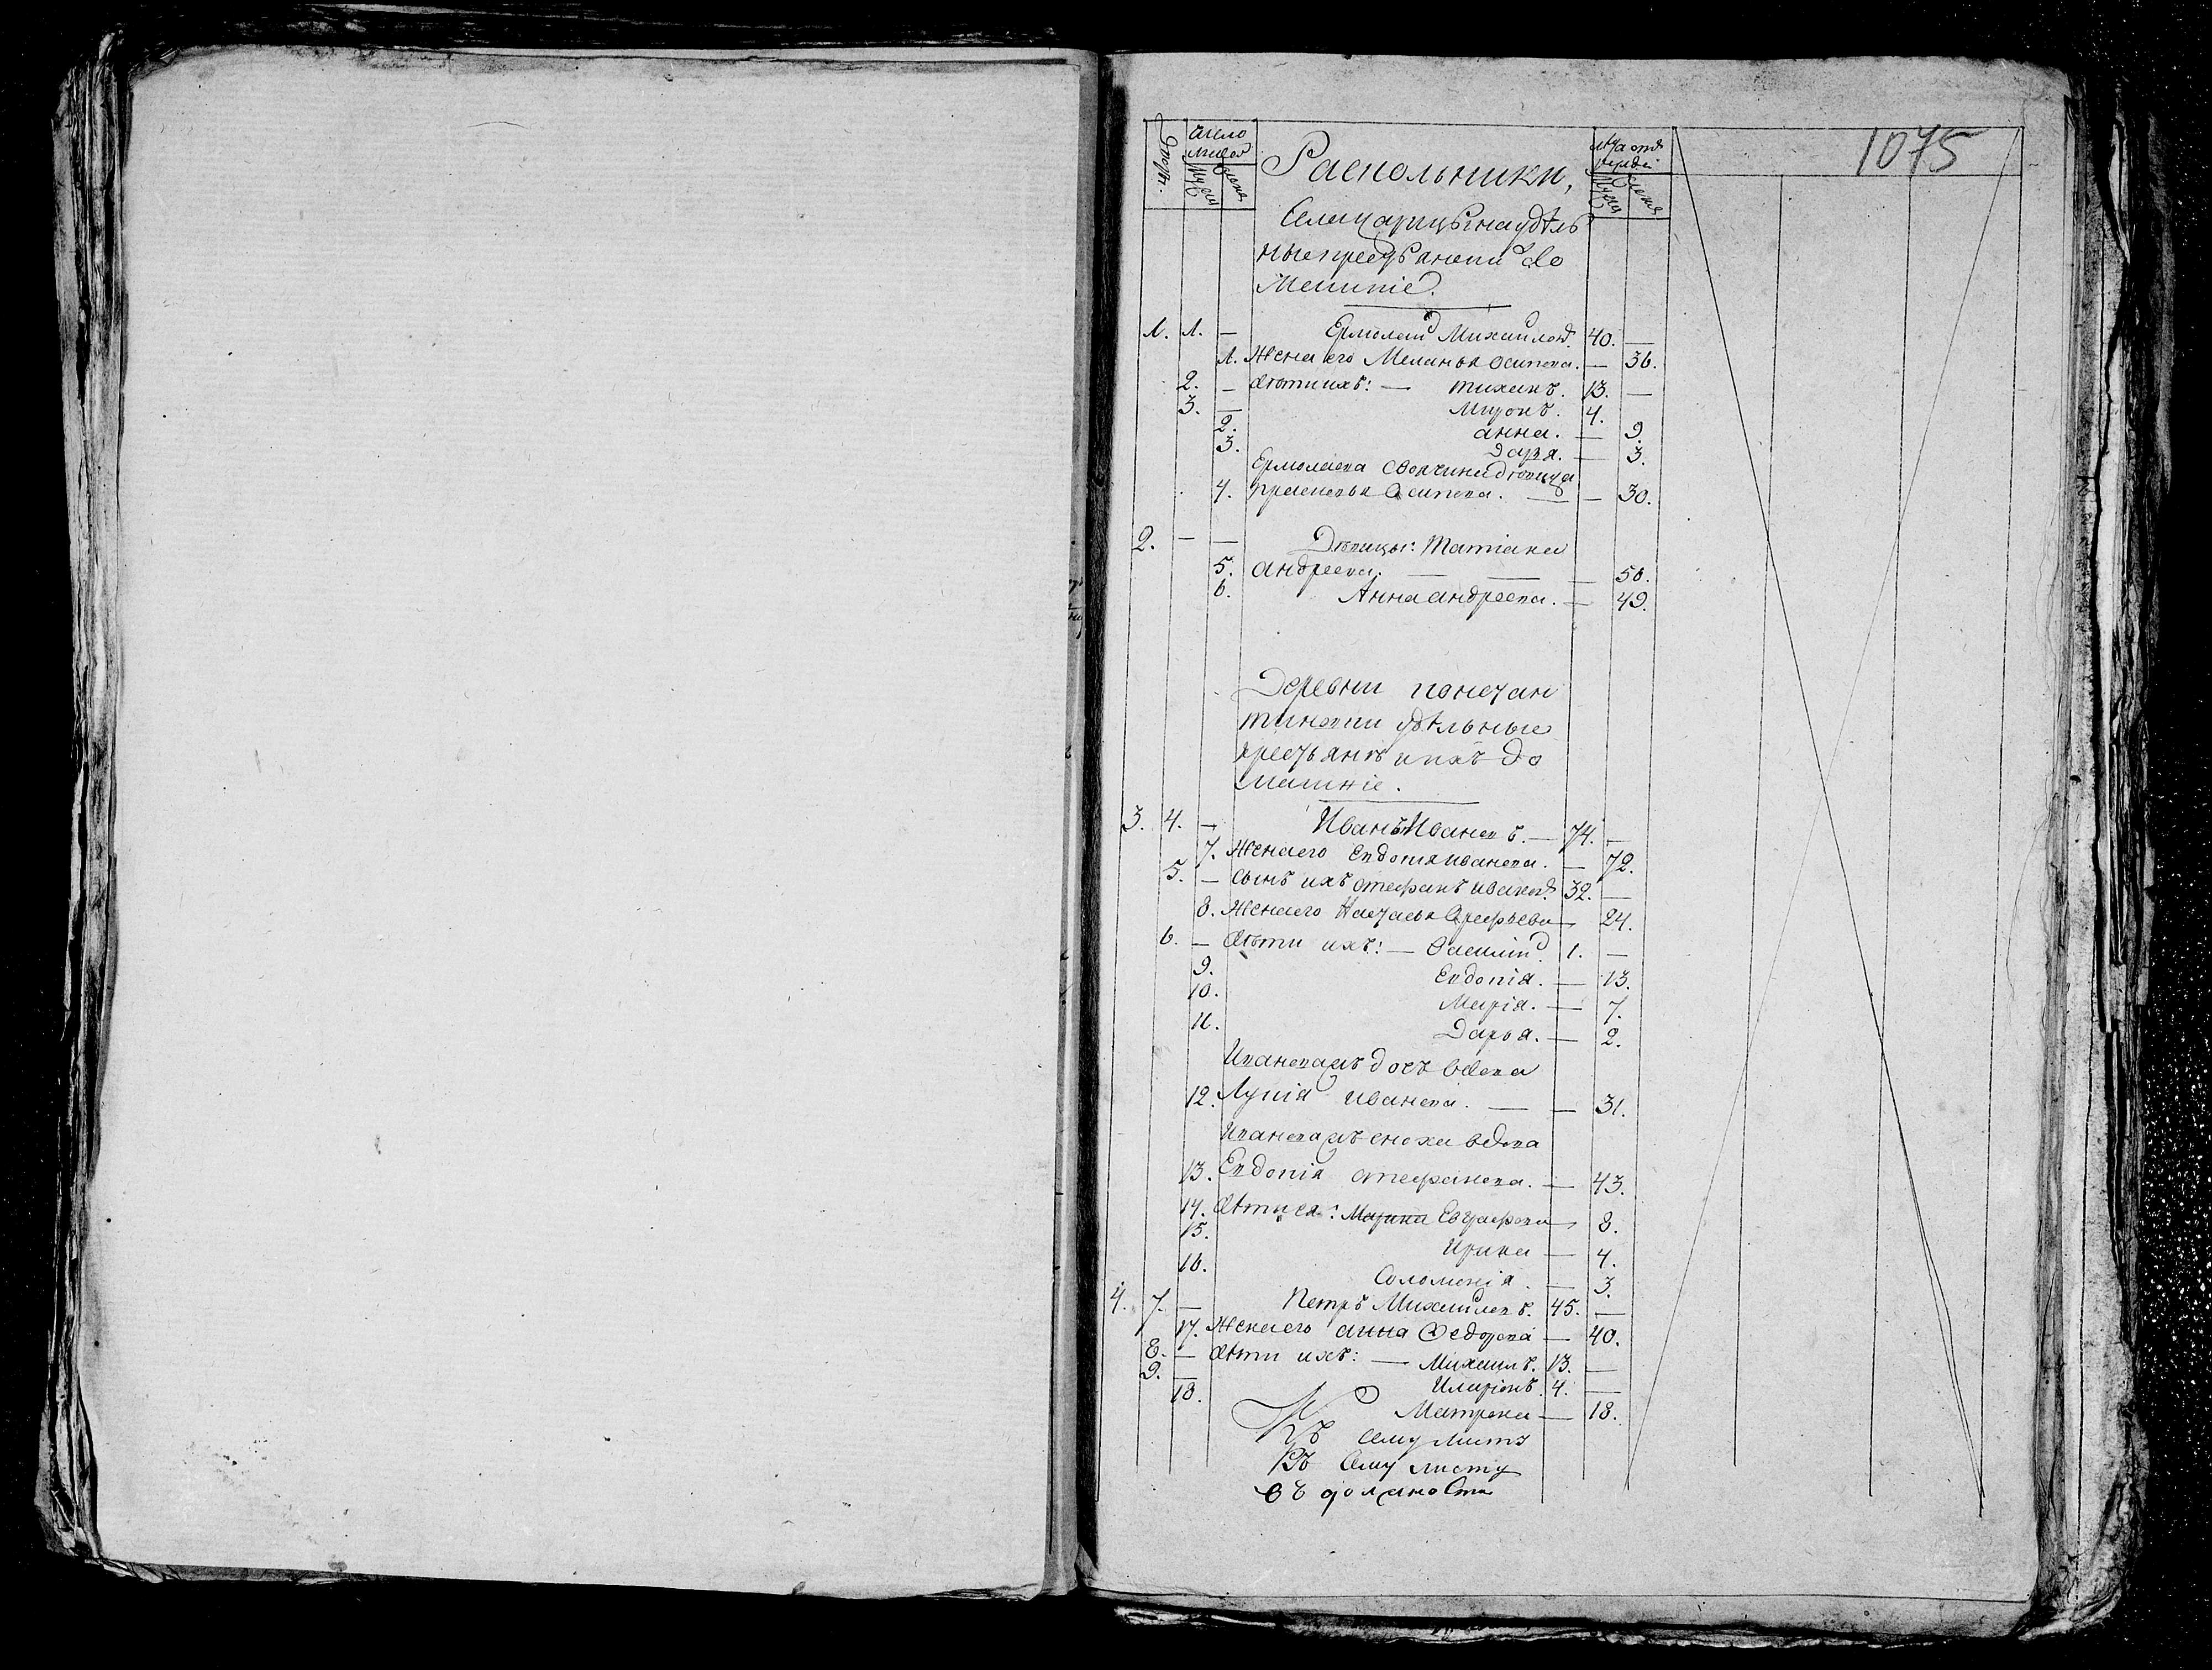 1075
число
Раскольники,
лѣта отъ
Села царицына удѣль
ные крестьяне и до
Машніе.
1. 1. — Ермолай Михайлов. 40. —
1. Жена его Меланья осипова. — 36.
2. — дѣти ихъ: — тихонъ. 13. —
3. — Миронъ. 4.
2. анна. — 9.
3. дарья. — 3.
Ермолаева своячина дѣвица
4. Прасковья Осипова. — — 30.
2. — — Дѣвицы: Татіана
5. андреева. — — — 50.
6. Анна андреева. — 49.
Деревни
удѣльные
крестьяне и ихъ до
машніе.
3. 4. — Иванъ Ивановъ. — 74. —
7. Жена его Евдокія иванова. — 72.
5. — сынъ ихъ стефанъ иванов. 32. —
8. Жена его Настасья Арефьева — 24.
6. — дѣти ихъ: — Василій. 1. —
9. Евдокія. — 13.
10. Марія. — 7.
11. Дарья. — 2.
Иванова дочь вдова
12. Лукія иванова. — — 31.
Иванова сноха вдова
13. Евдокія стефанова. — 43.
14. дѣти ея: Марина Евграфова — 8.
15. Ирина — 4.
16. Соломонія. — 3.
4. 7. — Петръ Михайловъ. 45. —
17. Жена его анна Федорова — 40.
8. — дѣти ихъ: — Михаилъ. 13. —
9. — Иларіонъ. 4. —
18. Матрона — 18.
Къ сему листу
Къ Сему листу